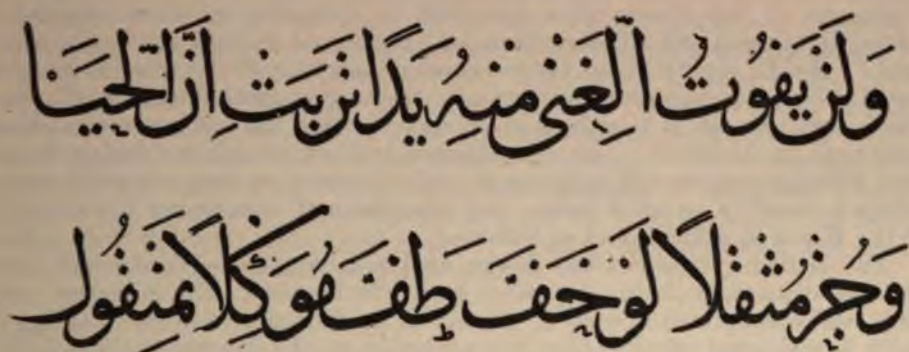 وَلَنْ يَفُوتُ الْغِنٰى مِنْهُ يَدًا تَرَبَتْ اِنَّ الْحَيَا
وَجُزْ مُثْقَلًا لَوْ خَفَّ طَفَّ مُوَكِّلًا بمَنْقُول